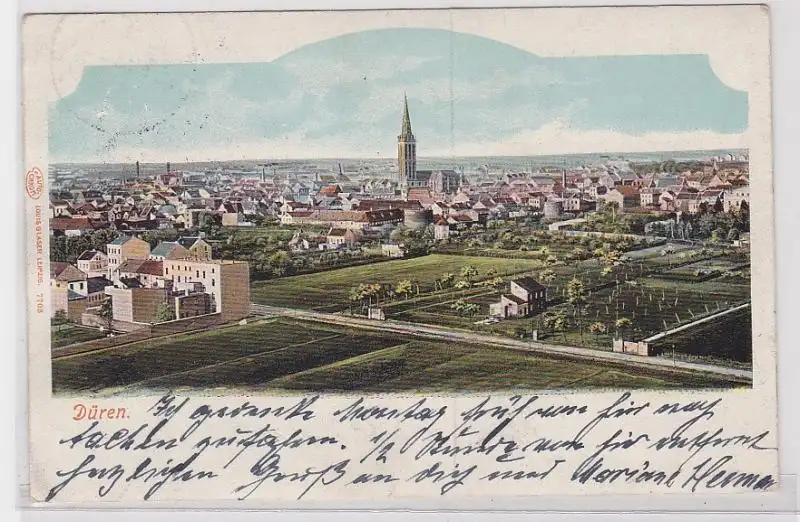 LOUIS GLASER LEIPZIG. 7703
Düren.
Ich gedenke Montag früh von hier nach
Aachen zufahren. 1/2 Stunde von hier entfernt
herzlichen Gruß an Dich und Mariane Herman